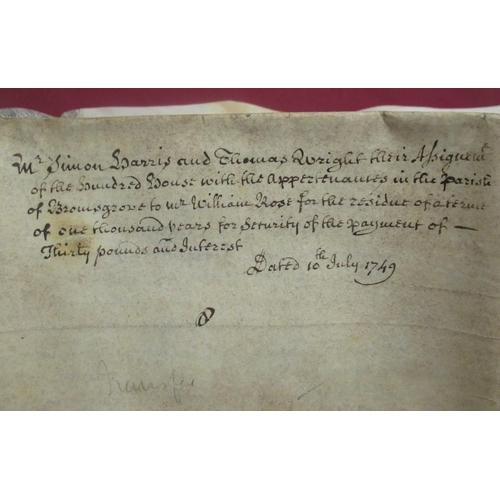 Mr Simon Harris and Thomas Wright their Assignemt
of the Hundred House with the Appertenances in the parish
of Bromsgrove to Mr William Rose for the residue of a terme
of one thousand years for Security of the payment of —
Thirty pounds and Interest
Dated 10th July 1749
8
Transfer